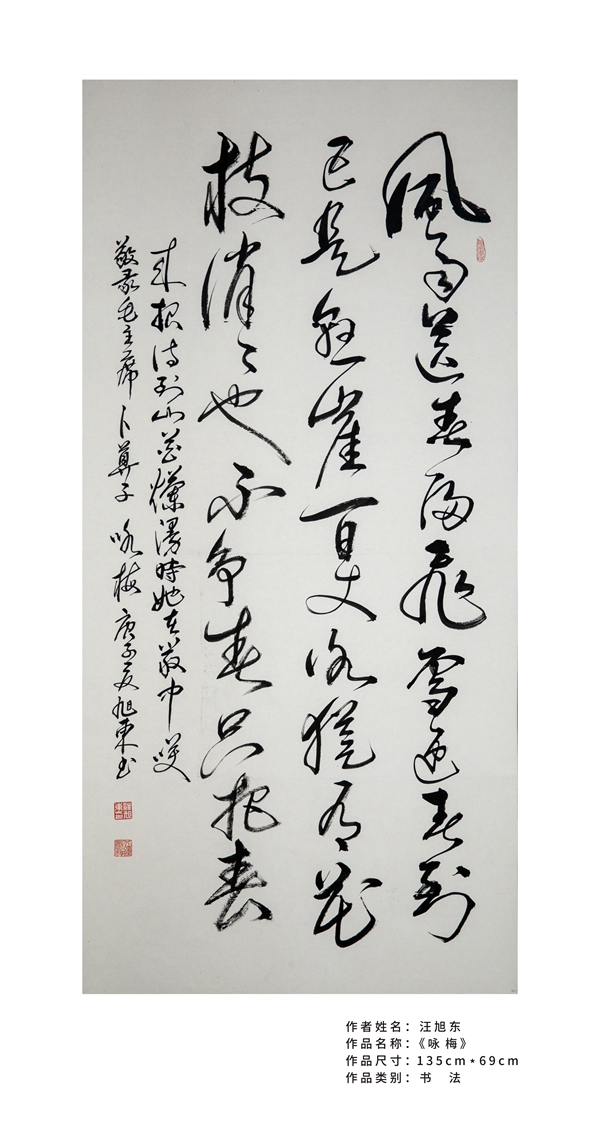 風雨送春歸飛雪迎春到
已是懸崖百丈冰猶有花
枝俏〻也不争春只把春
来报待到山花爛漫時她在叢中咲
敬录毛主席卜算子咏梅庚子夏旭東书
作者姓名：汪旭东
作品名称：《咏梅》
作品尺寸：135cm*69cm
作品类别：书 法